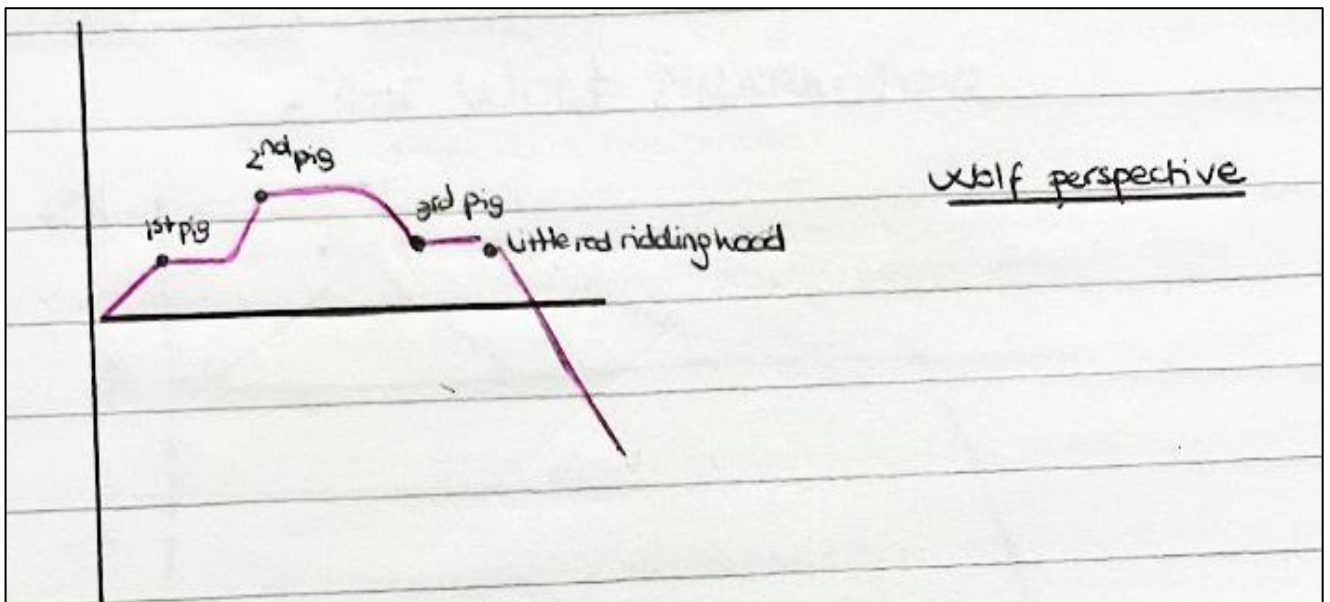 2nd pig
1st pig
3rd pig
Little red riddinghood
Wolf perspective